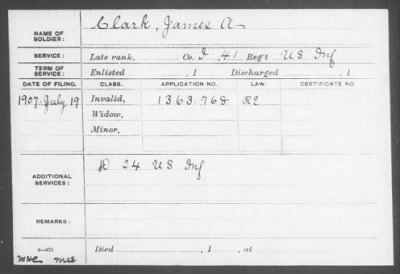 NAME OF SOLDIER: Clark, James A
SERVICE: Late rank, Co. I 41 Reg't US Inf
TERM OF SERVICE: Enlisted , 1 Discharged , 1
DATE OF FILING. CLASS. APPLICATION NO. LAW. CERTIFICATE NO.
1907 July 19 Invalid, 1363768 R2
Widow,
Minor,
ADDITIONAL SERVICES: D 24 US Inf
REMARKS:
Died , 1 , at